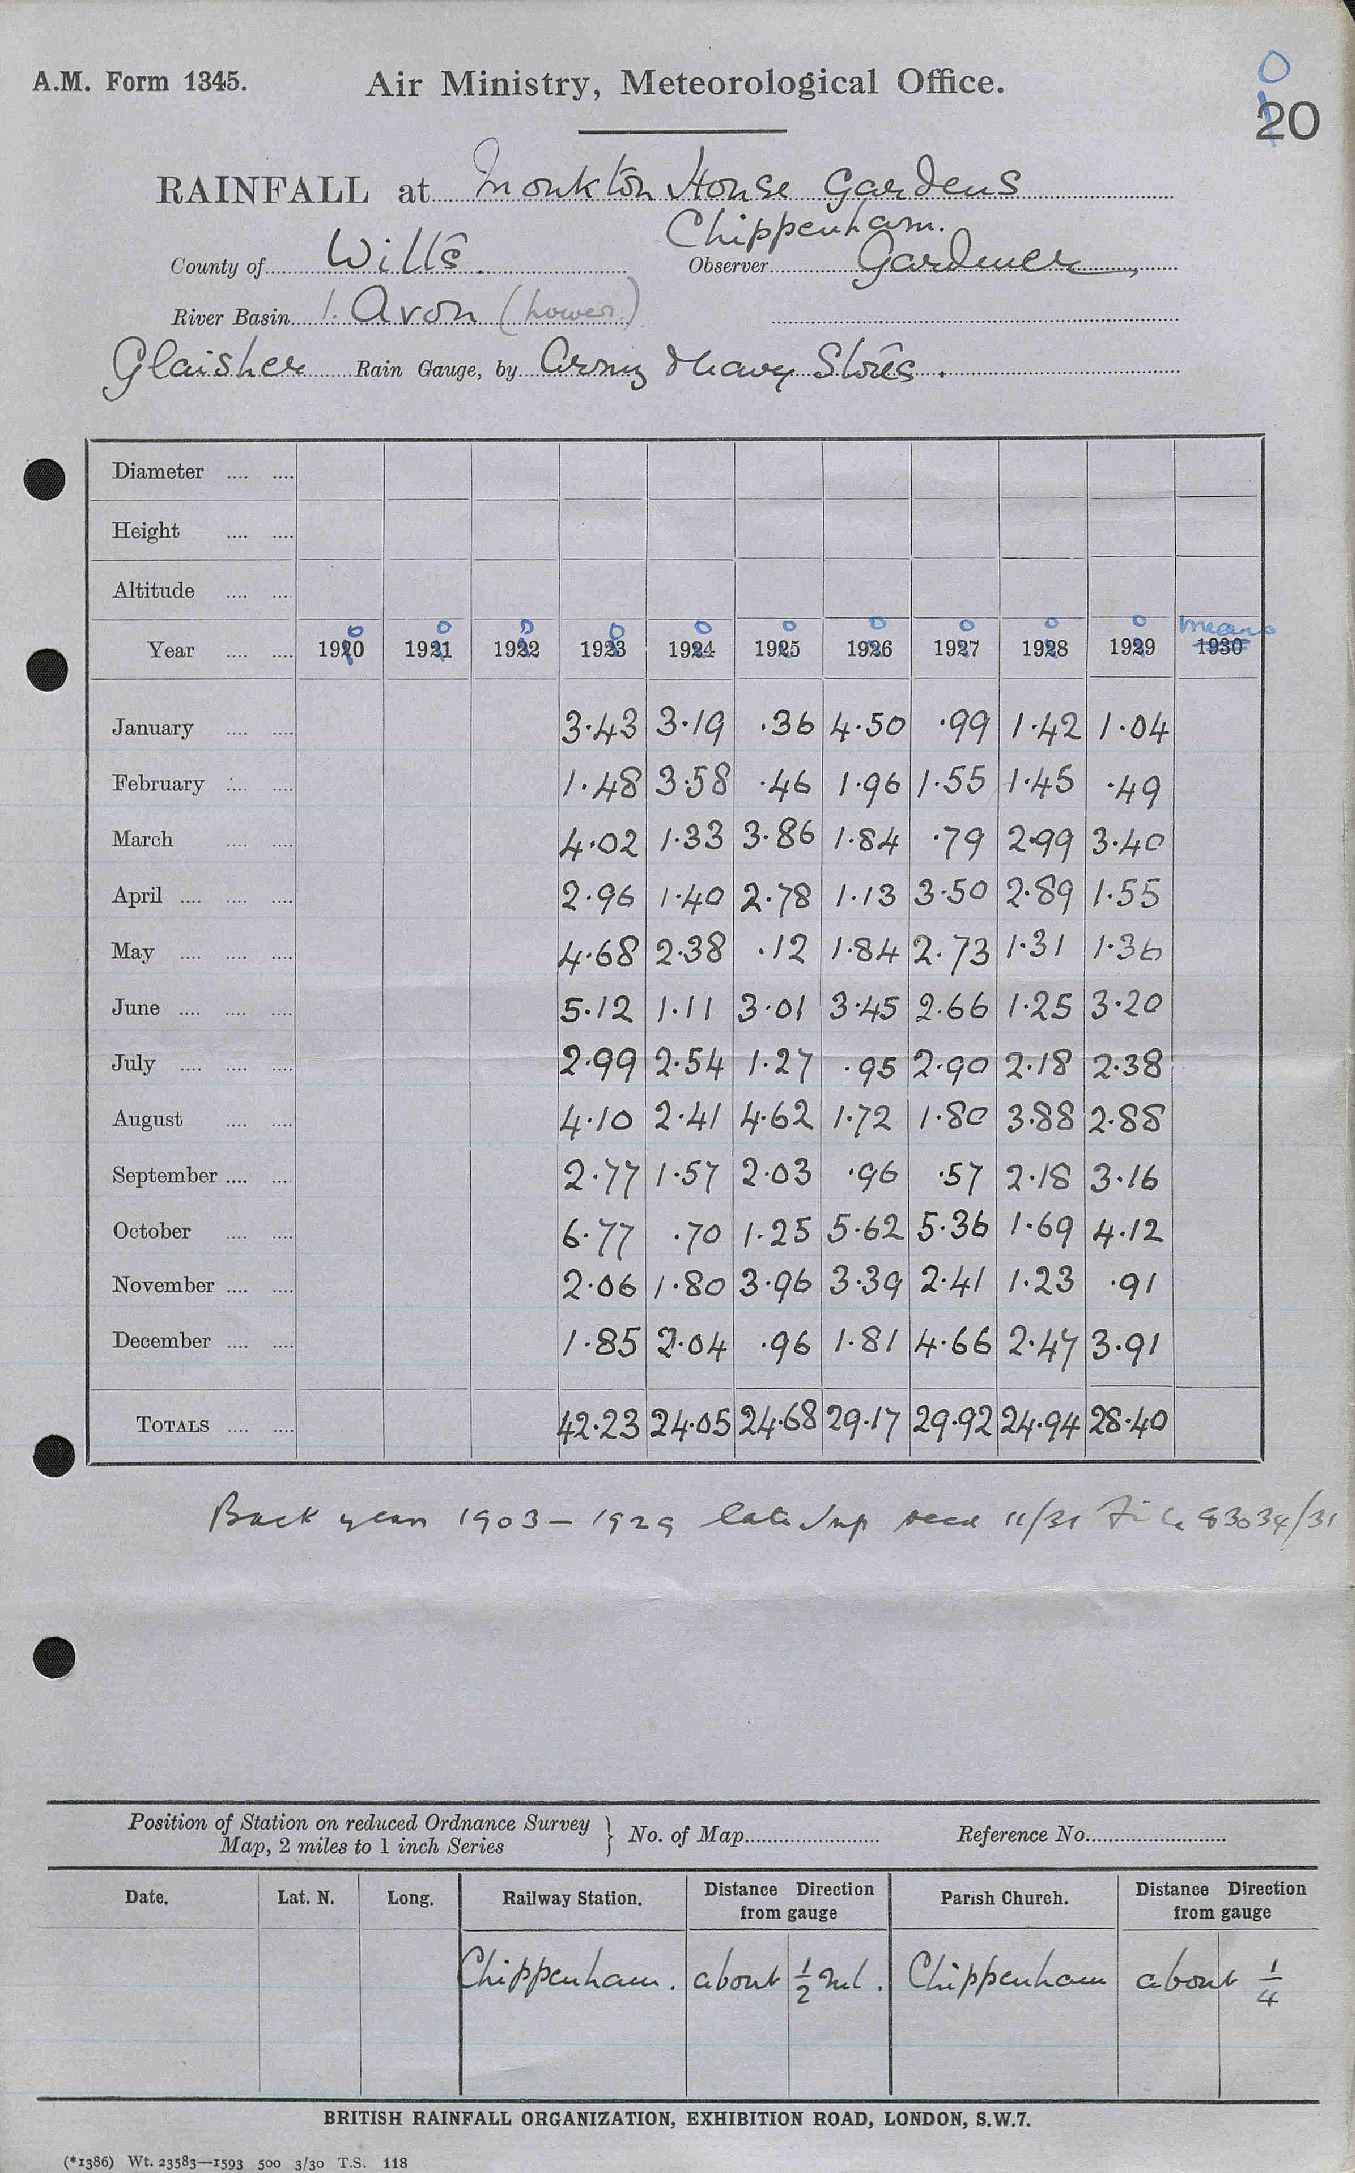 A.M. Form 1345.
Air Ministry, Meteorological Office.
0
120
RAINFALL at Monkton House Gardens
Chippenham.
County of Wilts. Observer Gardener,
River Basin 1. Avon (Lower)
Glaisher Rain Gauge, by Army & Navy Stores.
Diameter .... ....
Height .... ....
Altitude .... ....
Year .... .... 1900 1901 1902 1903 1904 1905 1906 1907 1908 1909 means 1930
January .... .... 3.43 3.19 .36 4.50 .99 1.42 1.04
February .... .... 1.48 3.58 .46 1.96 1.55 1.45 .49
March .... .... 4.02 1.33 3.86 1.84 .79 2.99 3.40
April .... .... .... 2.96 1.40 2.78 1.13 3.50 2.89 1.55
May .... .... .... 4.68 2.38 .12 1.84 2.73 1.31 1.36
June .... .... .... 5.12 1.11 3.01 3.45 2.66 1.25 3.20
July .... .... .... 2.99 2.54 1.27 .95 2.90 2.18 2.38
August .... .... 4.10 2.41 4.62 1.72 1.80 3.88 2.88
September .... .... 2.77 1.57 2.03 .96 .57 2.18 3.16
October .... .... 6.77 .70 1.25 5.62 5.36 1.69 4.12
November .... .... 2.06 1.80 3.96 3.39 2.41 1.23 .91
December .... .... 1.85 2.04 .96 1.81 4.66 2.47 3.91
TOTALS .... .... 42.23 24.05 24.68 29.17 29.92 24.94 28.40
Back years 1903 - 1929 recd 11/31 File 83034/31
Position of Station on reduced Ordnance Survey
Map, 2 miles to 1 inch Series } No. of Map Reference No.
Date. Lat. N. Long. Railway Station. Distance Direction from gauge Parish Church. Distance Direction from gauge
Chippenham. about 1/2 ml. Chippenham about 1/4
BRITISH RAINFALL ORGANIZATION, EXHIBITION ROAD, LONDON, S.W.7.
(*1386) Wt. 23583—1593 500 3/30 T.S. 118